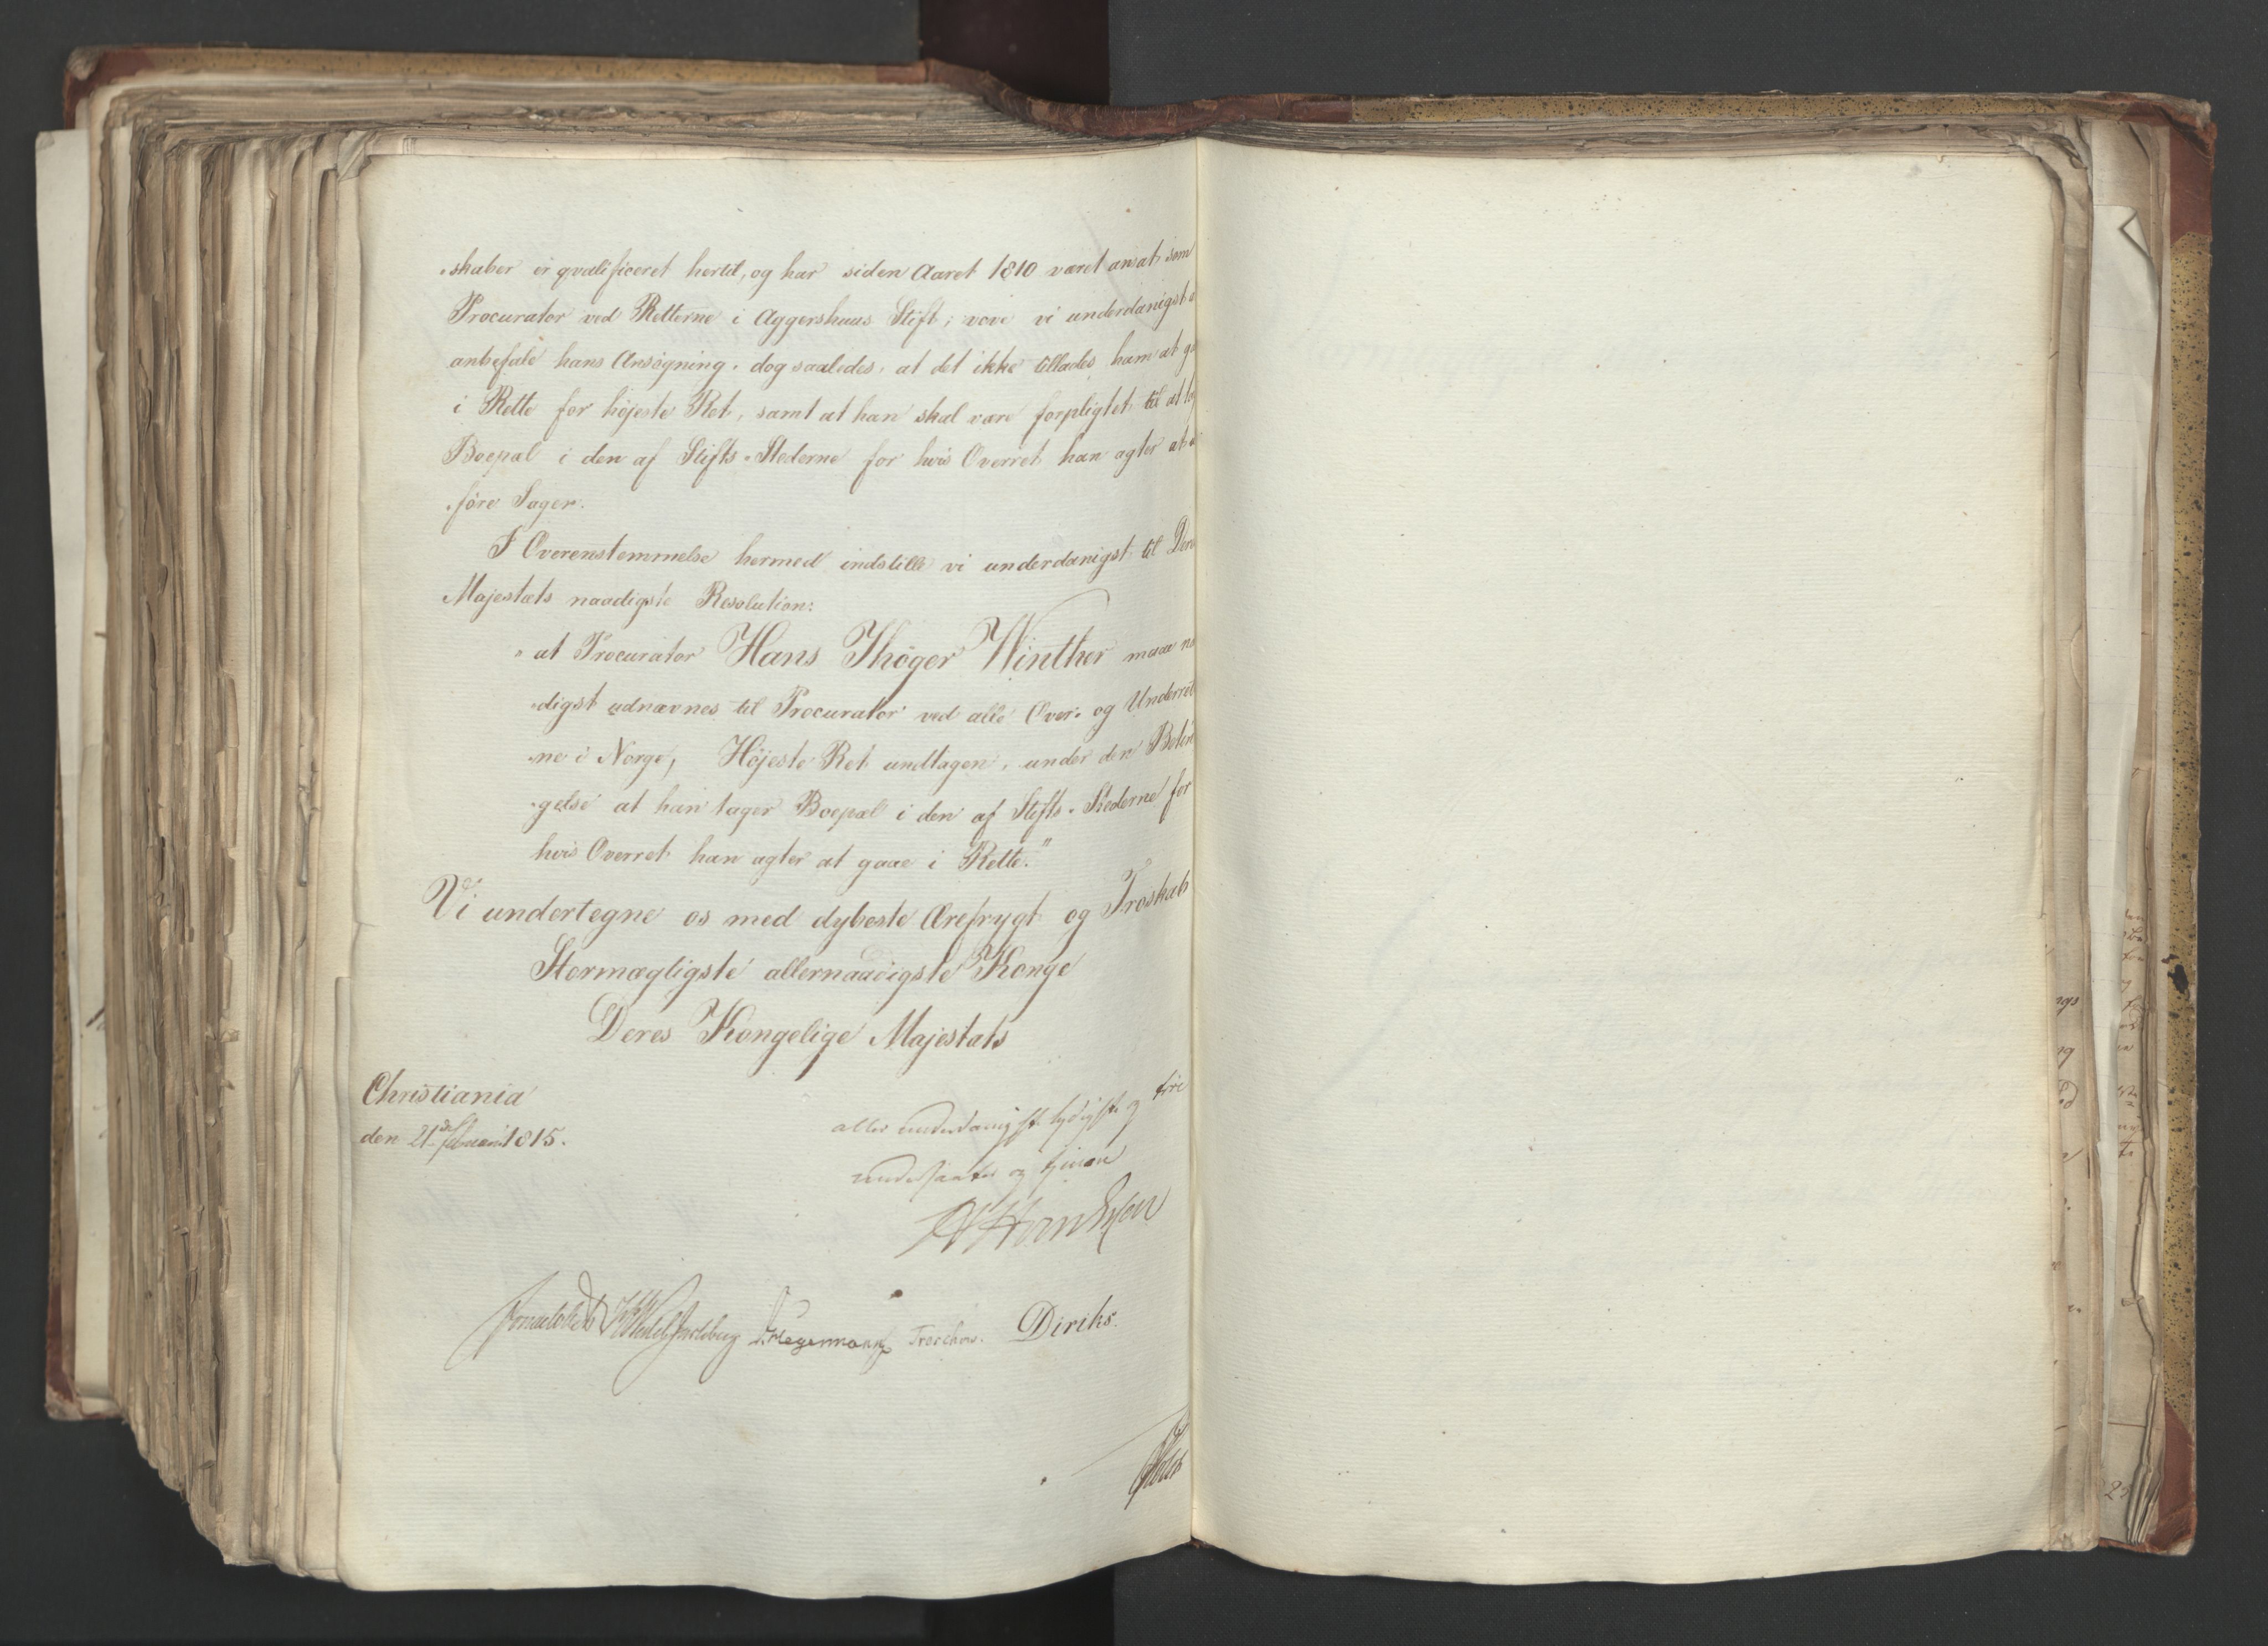 -skaber er qvalificeret hertil, og har siden Aaret 1810 været ansat som
Procurator ved Retterne i Aggershuus Stift; vove vi underdanigst a
anbefale hans Ansøgning, dog saaledes, at det ikke tillades ham at ga
i Rette for højeste Ret, samt at han skal være forpligtet til at ta
Boepæl i den af Stifts-Stederne for hvis Overret han agter at
-føre Sager.
I Overenstemmelse hermed indstille vi underdanigst til Deres
Majestæts naadigste Resolution:
"at Procurator Hans Thøger Winther maae na
-digst udnævnes til Procurator ved alle Over- og Underret
-ne i Norge, Højeste Ret undtagen, under den Betin
-gelse at han tager Boepæl i den af Stifts-Stederne for
hvis Overret han agter at gaae i Rette."
Vi undertegne os med dybeste Ærefrygt og Troskab
Stormægtigste allernaadigste Konge
Deres Kongelige Majestæts
Christiania
den 21de Februari 1815.
aller underdanigste lydigste og troe
undersaatter og tjenere
Sommerhielm Wedel Jarlsberg D. Hegermann Treschow. Diriks.